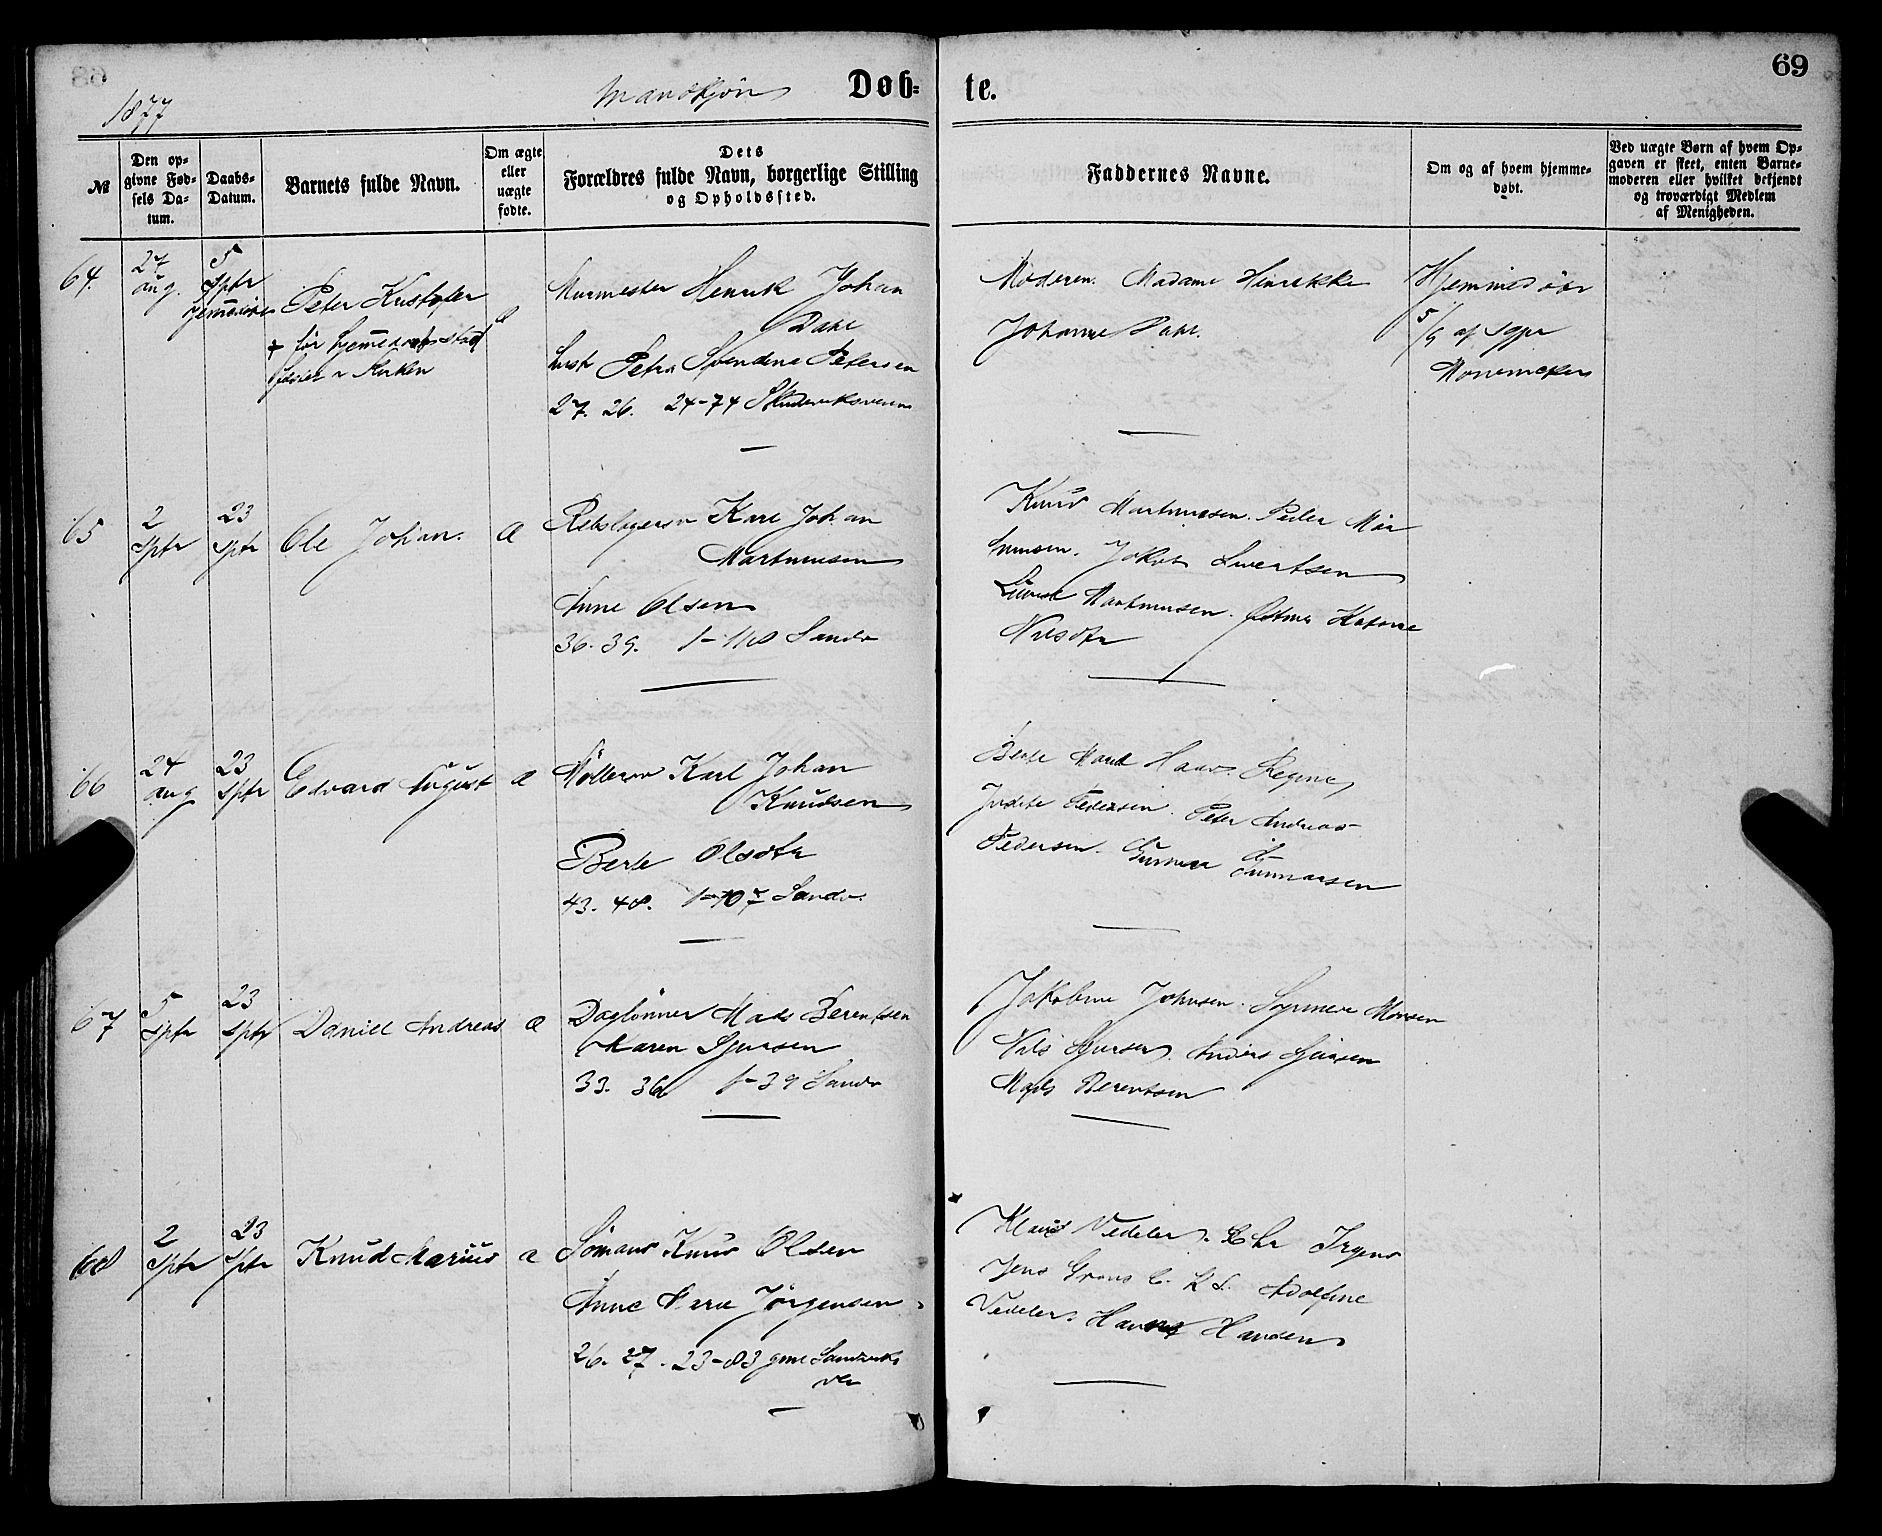 68
69
1877
Mandkjøn
Døb-
te.
№
Den op-
givne Fød-
sels Da-
tum.
Daabs-
Datum.
Barnets fulde Navn.
Om ægte
eller
uægte
fødte.
Dets
Forældres fulde Navn, borgerlige Stilling
og Opholdssted.
Faddernes Navne.
Om og af hvem hjemme-
døbt.
Ved uægte Børn af hvem Op-
gaven er skeet, enten Barne-
moderen eller hvilket bekjendt
og troværdigt Medlem
af Menigheden.
64.
27
aug.
5
Sptr
Peter Kristofer
Murmester Henrik Johan
Dahl
Petra Severdine Petersen
27. 26. 24-74
Moderen. Madame Henrikke
Johanne Dahl.
Hjemmedøbt
5/9 af Jgfr
Monemeker
65
2
Sptr
23
Sptr
Ole Johan.
a
Rebslagersv Karl Johan
Martinusen
Anne Olsen
36. 39. 1-118 Sandv
Knud Martinusen. Peder Mar
tinusen. Jakob Sivertsen
Martinusen.
Nilsdtr
66
24
aug
23
Sptr
Edvard August
a
Møllersv Karl Johan
Knudsen
Berte Olsdtr
43. 48. 1-107 Sandv.
Berte Marie Haar. Regine
Judite Pedersen. Peter Andreas
Pedersen. Gunnar Gunnarsen
67
5
Sptr
23
Sptr
Daniel Andreas
a
Daglønner Mads Berentsen
Maren Sjursen
33. 36 1-39 Sandv
Jakobine Johnsen. Synneve Monsen
Nils Sjursen. Anders Sjursen
Mads Berentsen
68
2
Sptr
23
Sptr
Knud Marius
a
Sømand Knud Olsen
Anne Marie Jørgensen
26. 27. 23-83
Klaus Vedeler. Chr Irgens
Jens Adolfine
Vedeler. Hansen